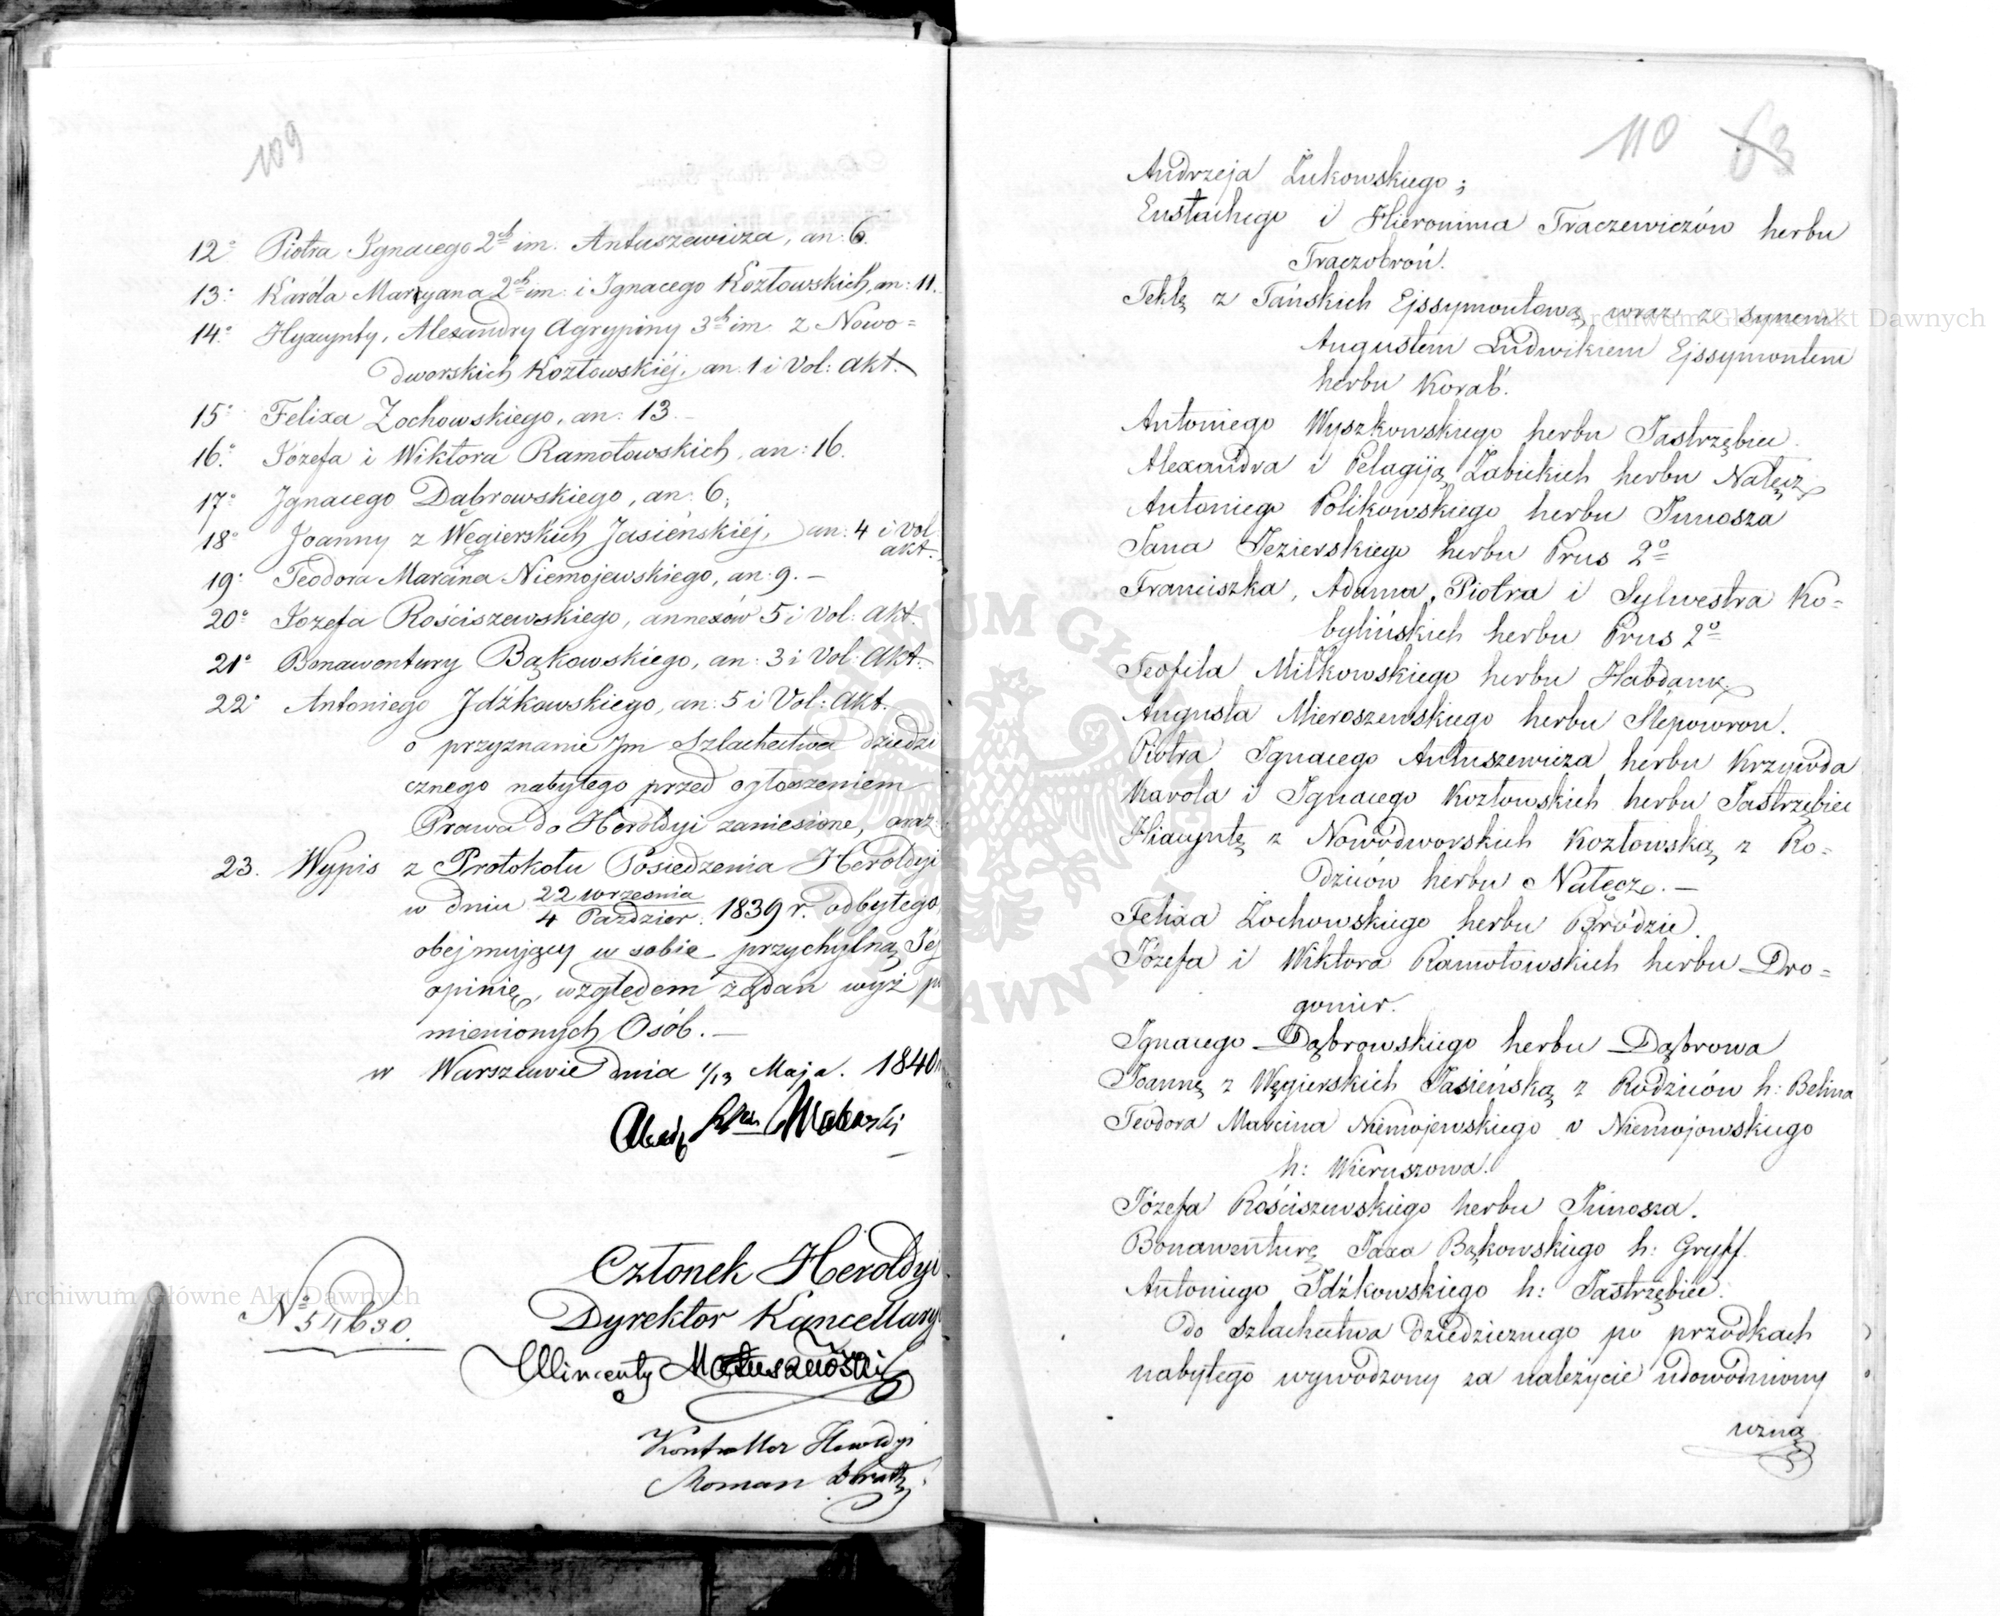 109
12° Piotra Ignacego 2ch im. Antuszewicza, an: 6.
13° Karóla Maryana 2ch im: i Ignacego Kozłowskich, an: 11.
14° Hyacynty, Alexandry Agrypiny 3ch im z Nowo=
dworskich Kozłowskiéj, an. 1 i Vol: Akt.
15° Felixa Żochowskiego, an: 13. –
16° Józefa i Wiktora Ramotowskich, an: 16.
17° Ignacego Dąbrowskiego, an: 6;
18° Joanny z Węgierskich Jasieńskiéj, an: 4 i Vol:
akt.
19° Teodora Marcina Niemojewskiego, an: 9. –
20° Józefa Rościszewskiego, annexów 5 i Vol: Akt.
21° Bonawentury Bąkowskiego, an: 3 i Vol: Akt.
22° Antoniego Idźkowskiego, an: 5 i Vol: Akt.
o przyznanie Im Szlachectwa dziedzi
cznego nabytego przed ogłoszeniem
Prawa do Heroldyi zaniesione, oraz
23. Wypis z Protokołu Posiedzenia Heroldyi
w dniu 22 września / 4 Paździer. 1839 r. odbytego,
obejmujący w sobie przychylną Jéj
opinię, względem żądań wyż
mienionych Osób. –
w Warszawie dnia 1/13 Maja. 1840
Członek Heroldyi
Dyrektor Kancellaryi
Wincenty Matuszewski
Kontrollor Heroldyi
Roman
№ 54630.
110 63
Andrzeja Żukowskiego;
Eustachego i Hieronima Traczewiczów herbu
Traczobroń.
Teklę z Tańskich Ejssymontową wraz z synem
Augustem Ludwikiem Ejssymontem
herbu Korab.
Antoniego Wyszkowskiego herbu Jastrzębiec.
Alexandra i Pelagiją Żabickich herbu Nałęcz
Antoniego Polikowskiego herbu Junosza
Jana Jezierskiego herbu Prus 2°
Franciszka, Adama, Piotra i Sylwestra Ko=
bylińskich herbu Prus 2°
Teofila Miłkowskiego herbu Habdank
Augusta Mieroszewskiego herbu Slepowron.
Piotra Ignacego Antuszewicza herbu Krzywda
Karola i Ignacego Kozłowskich herbu Jastrzębiec
Hiacyntę z Nowodworskich Kozłowską z Ro=
dziców herbu Nałęcz. –
Felixa Żochowskiego herbu Bródzic.
Józefa i Wiktora Ramotowskich herbu Dro=
gomir.
Ignacego Dąbrowskiego herbu Dąbrowa
Joannę z Węgierskich Jasieńską z Rodziców h: Belina
Teodora Marcina Niemojewskiego v Niemojowskiego
h: Wieruszowa.
Józefa Rościszewskiego herbu Junosza.
Bonawenturę Jaxa Bąkowskiego h: Gryff.
Antoniego Idźkowskiego h: Jastrzębiec.
Do szlachectwa dziedzicznego po przodkach
nabytego wywodzony za należycie udowodniony
uzna
Archiwum Główne Akt Dawnych
Archiwum Główne Akt Dawnych
ARCHIWUM GŁÓWNE AKT DAWNYCH